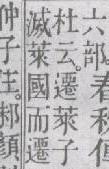 六部。春秋傳
杜云。遷萊子
滅萊國而遷
仲子注。邾顏